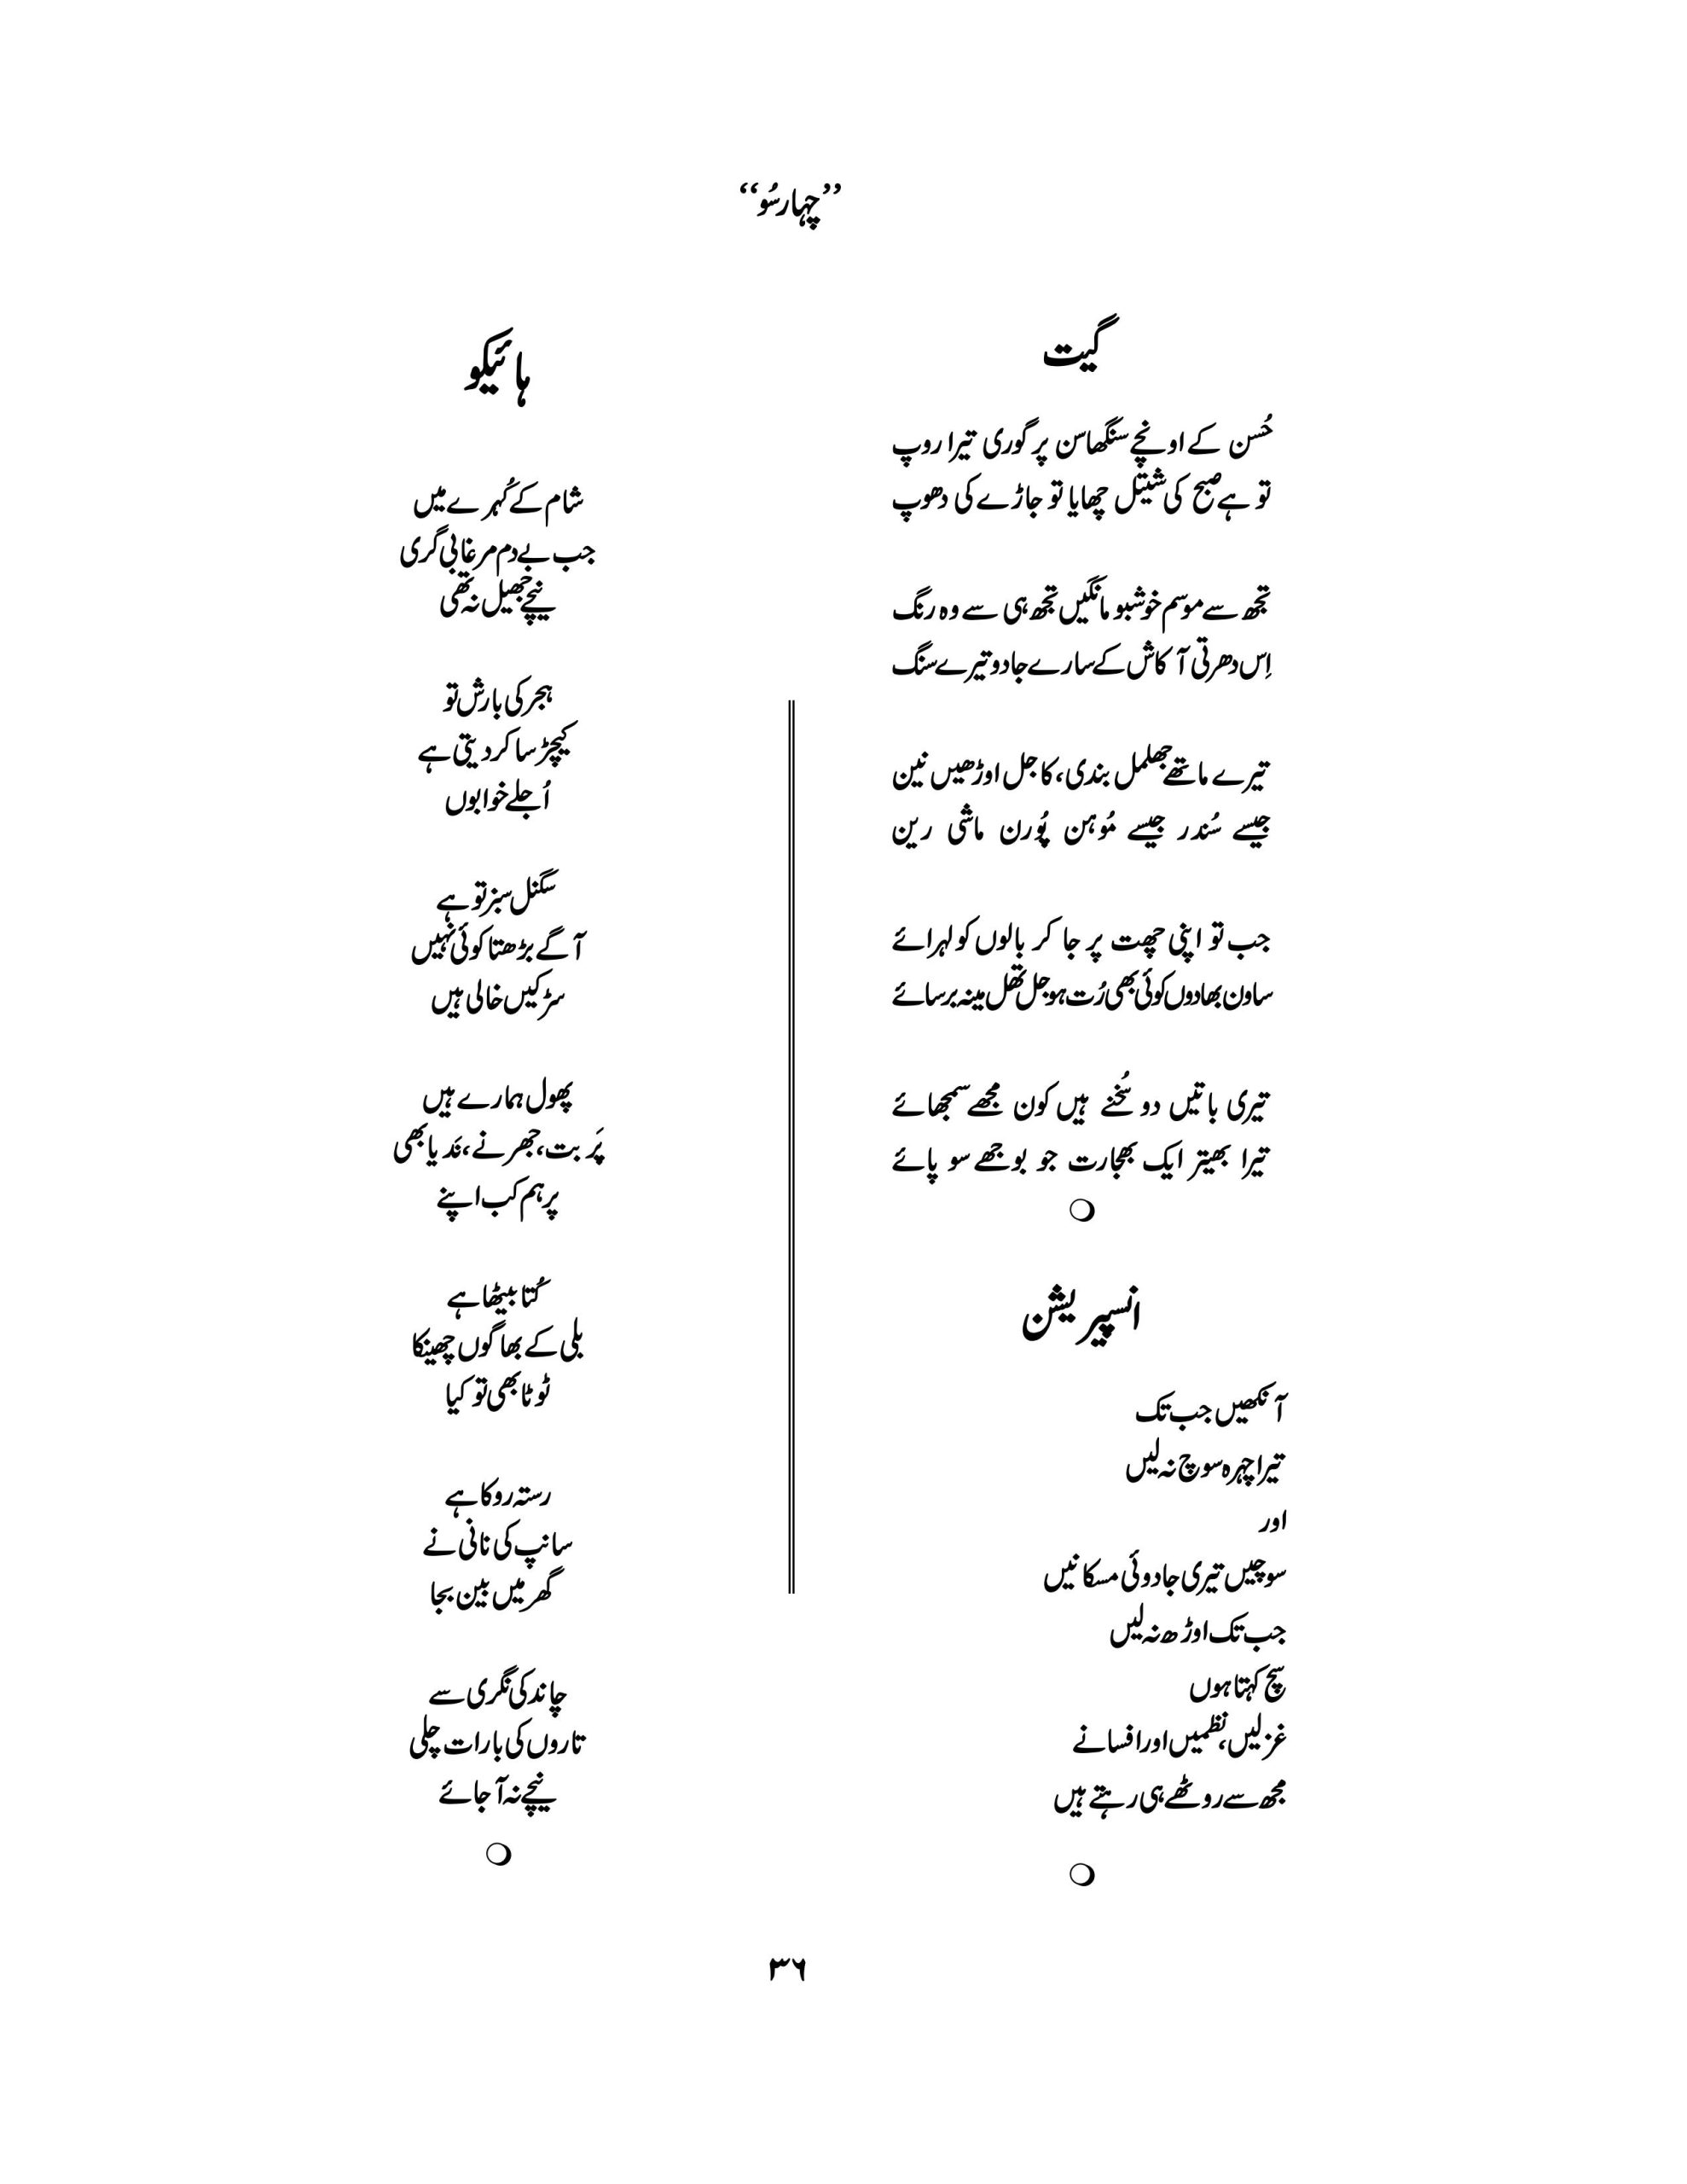 ’’چہارسُو‘‘
گیت
حُسن کے اونچے سنگھاسن پر گوری تیرا روپ
تو ہے صبح کی شیتل چھایا تو جاڑے کی دھوپ
تجھ سے موسم خوشبو مانگیں تجھ ہی سے وہ رنگ
اِس دھرتی آکاش کے سارے جادو تیرے سنگ
تیرے ماتھے جھلمل بندی، کاجل اوڑھیں نین
جیسے سُندر جیسے مُوہن پُورن ماشی رین
جب تو اپنی چھت پر جا کر بالوں کو لہرائے
ساون بھادوں کوئی بھی رُت ہو جل تھل مینہ برسائے
تیری باتیں دو سُخنے ہیں کون مجھے سمجھائے
تیرا بھیتر ایک بجھارت جو بوجھے سو پائے
انسپریشن
آنکھیں جب تک
تیرا چہرہ سوچ نہ لیں
اور
سوچیں تیری جادوئی مسکانیں
جب تک اوڑھ نہ لیں
سچ کہتا ہوں
غزلیں، نظمیں اور افسانے
مجھ سے روٹھے ہی رہتے ہیں
ہائیکو
شام کے کُہرے میں
جب بے دم مرغابی گری
نیچے جھیل نہ تھی
ہجر کی بارش تو
کیچڑ سا کر دیتی ہے
اُجلے خوابوں
سگنل سبز تو ہے
آگے بڑھتا کوئی نہیں
سڑکیں خالی ہیں
پھول ہمارے ہیں
پَربت، جھرنے، نَدیا بھی
پر ہم کب اپنے
کُتا بیٹھا ہے
بلی کے بھاگوں چھینکا
ٹوٹا بھی تو کیا
رستہ روکا ہے
سانپ کی نانی نے
گھر میں بین بجا
چاند کی نگری سے
تاروں کی بارات چلی
نیچے نہ آ جائے
۳۶